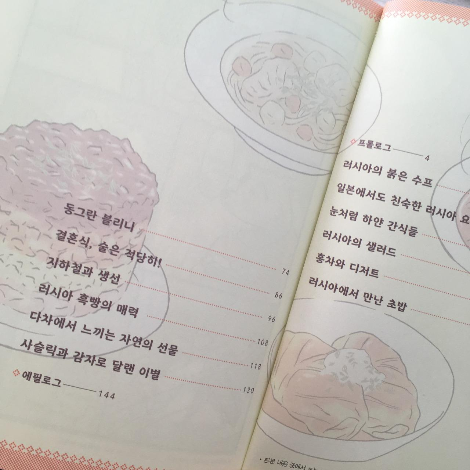 동그란 블리니 74
결혼식, 술은 적당히! 86
지하철과 생선 96
러시아 흑빵의 매력 108
다차에서 느끼는 자연의 선물 118
샤슬릭과 감자로 달랜 이별 130
에필로그 144
프롤로그 4
러시아의 붉은 수프
일본에서도 친숙한 러시아 요
눈처럼 하얀 간식들
러시아의 샐러드
홍차와 디저트
러시아에서 만난 초밥